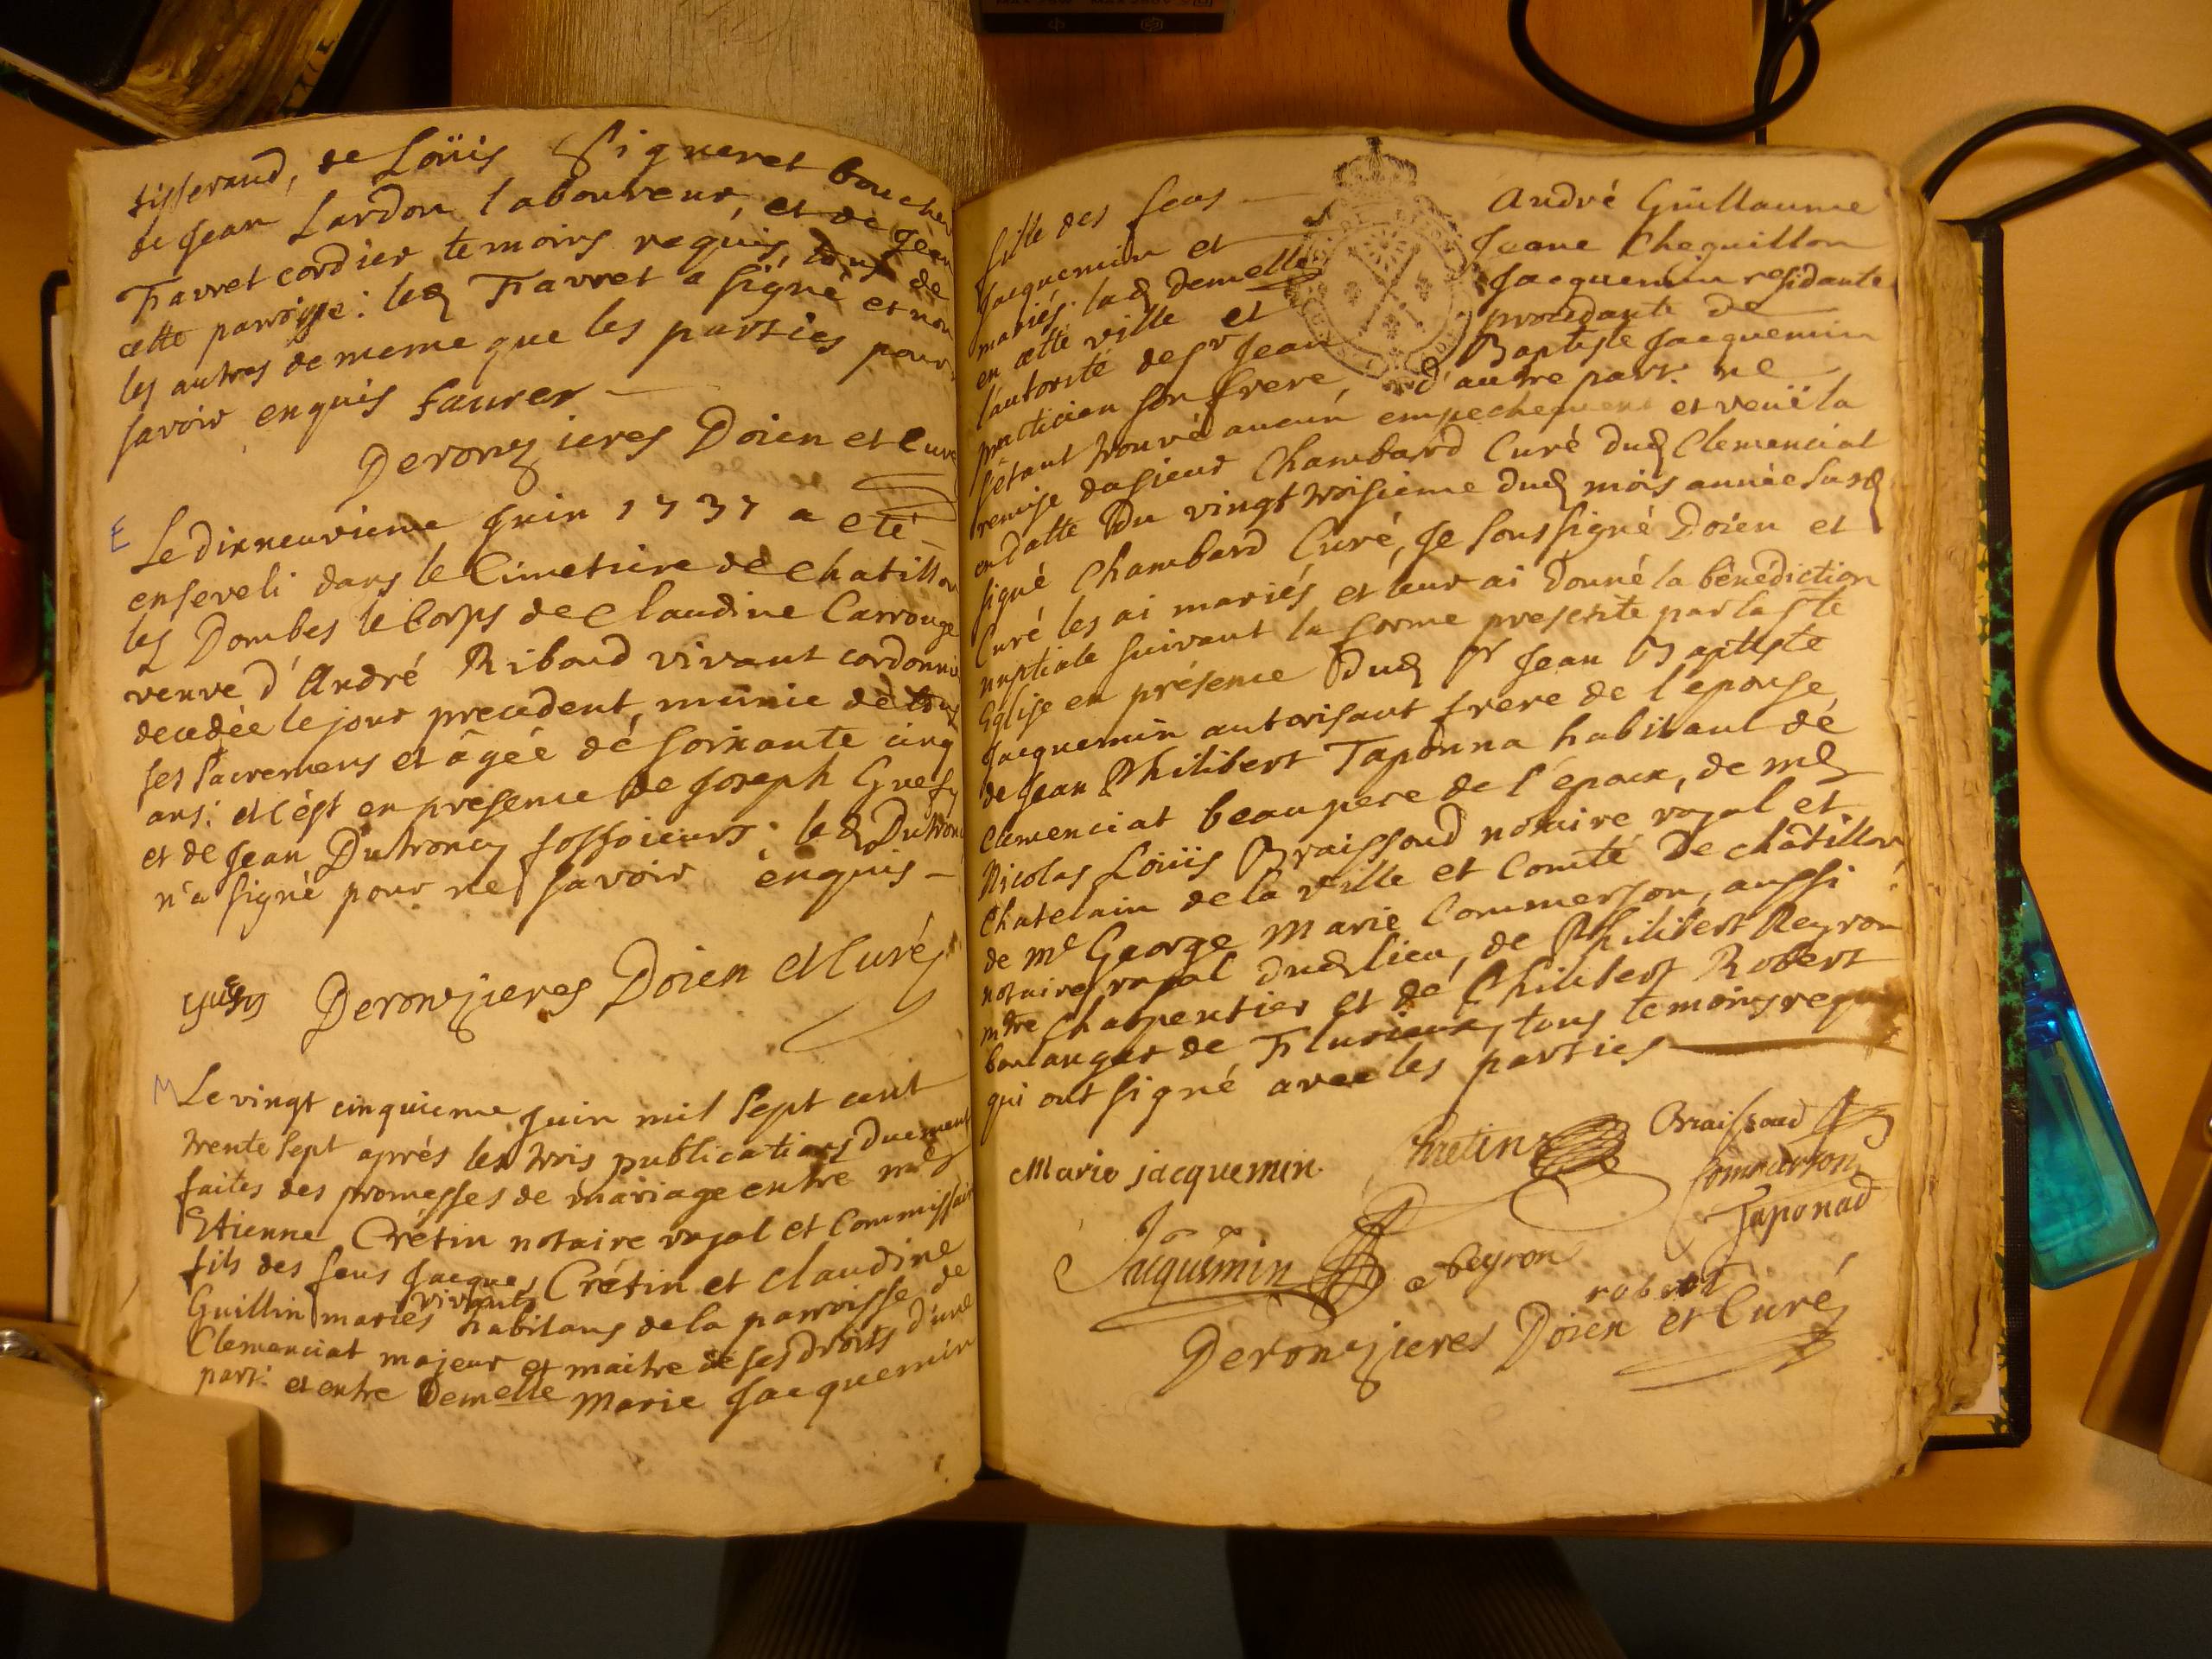 tisserand, de Loüis Signeret boucher
de Jean Lardon laboureur, et de Jean
Favret cordier temoins requis, tous de
cette parroisse: led Favret a signé et non
les autres de meme que les parties pour
savoir enquis
Deronzieres Doien et Curé
E
Le dixneuvieme Juin 1737 a eté
enseveli dans le Cimetiere de Chatillon
les Dombes le Corps de Claudine Carrouge
veuve d'André Riboud vivant cordonnier
decedée le jour precedent, munie de tous
ses sacremens et âgée de soixante cinq
ans: et c'est en présence de Joseph Guesy
et de Jean Dutroncy fossoieurs; led Dutroncy
n'a signé pour ne savoir enquis
guesy Deronzieres Doien et Curé
M
Le vingt cinquieme Juin mil sept cent
trente sept aprés les trois publications duement
faites des promesses de mariage entre
Etienne Crétin notaire royal et Commissaire
fils des feus Jacques Crétin et Claudine
Guillin mariés vivants habitans de la parroisse de
Clemenciat majeur et maitre de ses droits d'une
part: et entre Demelle Marie Jacquemin
fille des feus André Guillaume
Jacquemin et Jeane Cheguillon
mariés. lad demelle Jacquemin residante
en cette ville et procedante de
l'autorité de Sr Jean Baptiste Jacquemin
practicien son frere, d'autre part. ne
s'étant trouvé aucun empechement et veüe la
remise dusieur Chambard Curé dud Clemenciat
en datte du vingt troisieme dud mois année susd
signé Chambard Curé, Je soussigné Doien et
Curé les ai mariés et leur ai donné la bénédiction
nuptiale suivant la forme prescrite par la Ste
Eglise en présence dud Sr Jean Baptiste
Jacquemin autorisant frere de l'épouse
de Jean Philibert Taponna habitant de
Clemenciat beaupere de l'époux, de
Nicolas Loüis Braissoud notaire royal et
Chatelain de la ville et Comté de châtillon
de Me George Marie Commerson, aussi
notaire royal dud lieu, de Philibert Reyron
mtre charpentier et de Philibert Robert
boulanger de Flurieux, tous temoins requis
qui ont signé avec les parties
Marie jacquemin Cretin Braissoud
Commerson
Taponad
Jacquemin Reyron
robert
Deronzieres Doien et Curé